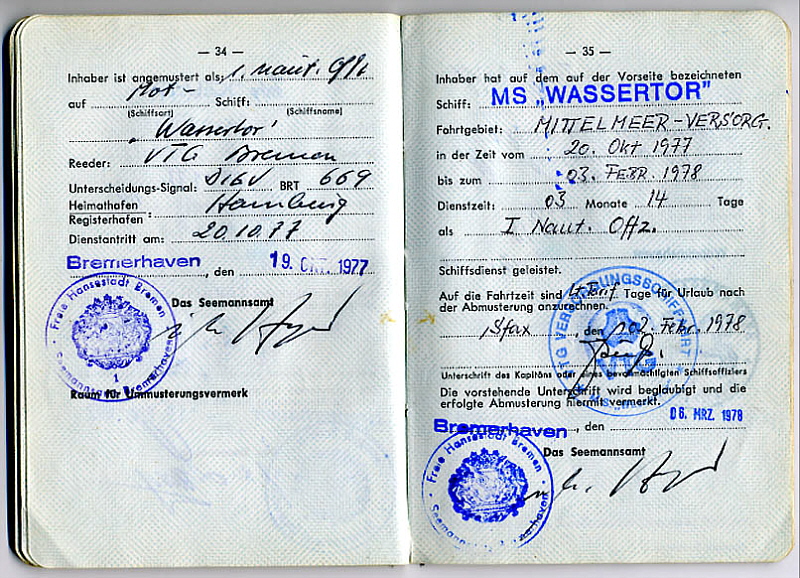 — 34 —
Inhaber ist angemustert als: 1. naut. Offz.
auf Mot- Schiff:
(Schiffsart) (Schiffsname)
„Wassertor'
Reeder: VTG Bremen
Unterscheidungs-Signal: BRT 669
Heimathafen
Registerhafen: Hamburg
Dienstantritt am: 20.10.77
Bremerhaven, den 19. OKT. 1977
Das Seemannsamt
Freie Hansestadt Bremen
Seemannsamt Bremerhaven
1
Raum für Ummusterungsvermerk
— 35 —
Inhaber hat auf dem auf der Vorseite bezeichneten
Schiff: MS „WASSERTOR"
Fahrtgebiet: MITTELMEER-VERSORG.
in der Zeit vom 20. Okt 1977
bis zum 03. FEBR. 1978
Dienstzeit: 03 Monate 14 Tage
als I Naut. Offz.
Schiffsdienst geleistet.
Auf die Fahrtzeit sind lt. Tarif Tage für Urlaub nach
der Abmusterung anzurechnen.
Sfax, den 02. Febr. 1978
VTG VERSORGUNGSSCHIFFAHRT
Unterschrift des Kapitäns oder eines bevollmächtigten Schiffsoffiziers
Die vorstehende Unterschrift wird beglaubigt und die
erfolgte Abmusterung hiermit vermerkt.
Bremerhaven, den 06. MRZ. 1978
Das Seemannsamt
Freie Hansestadt Bremen
Seemannsamt Bremerhaven